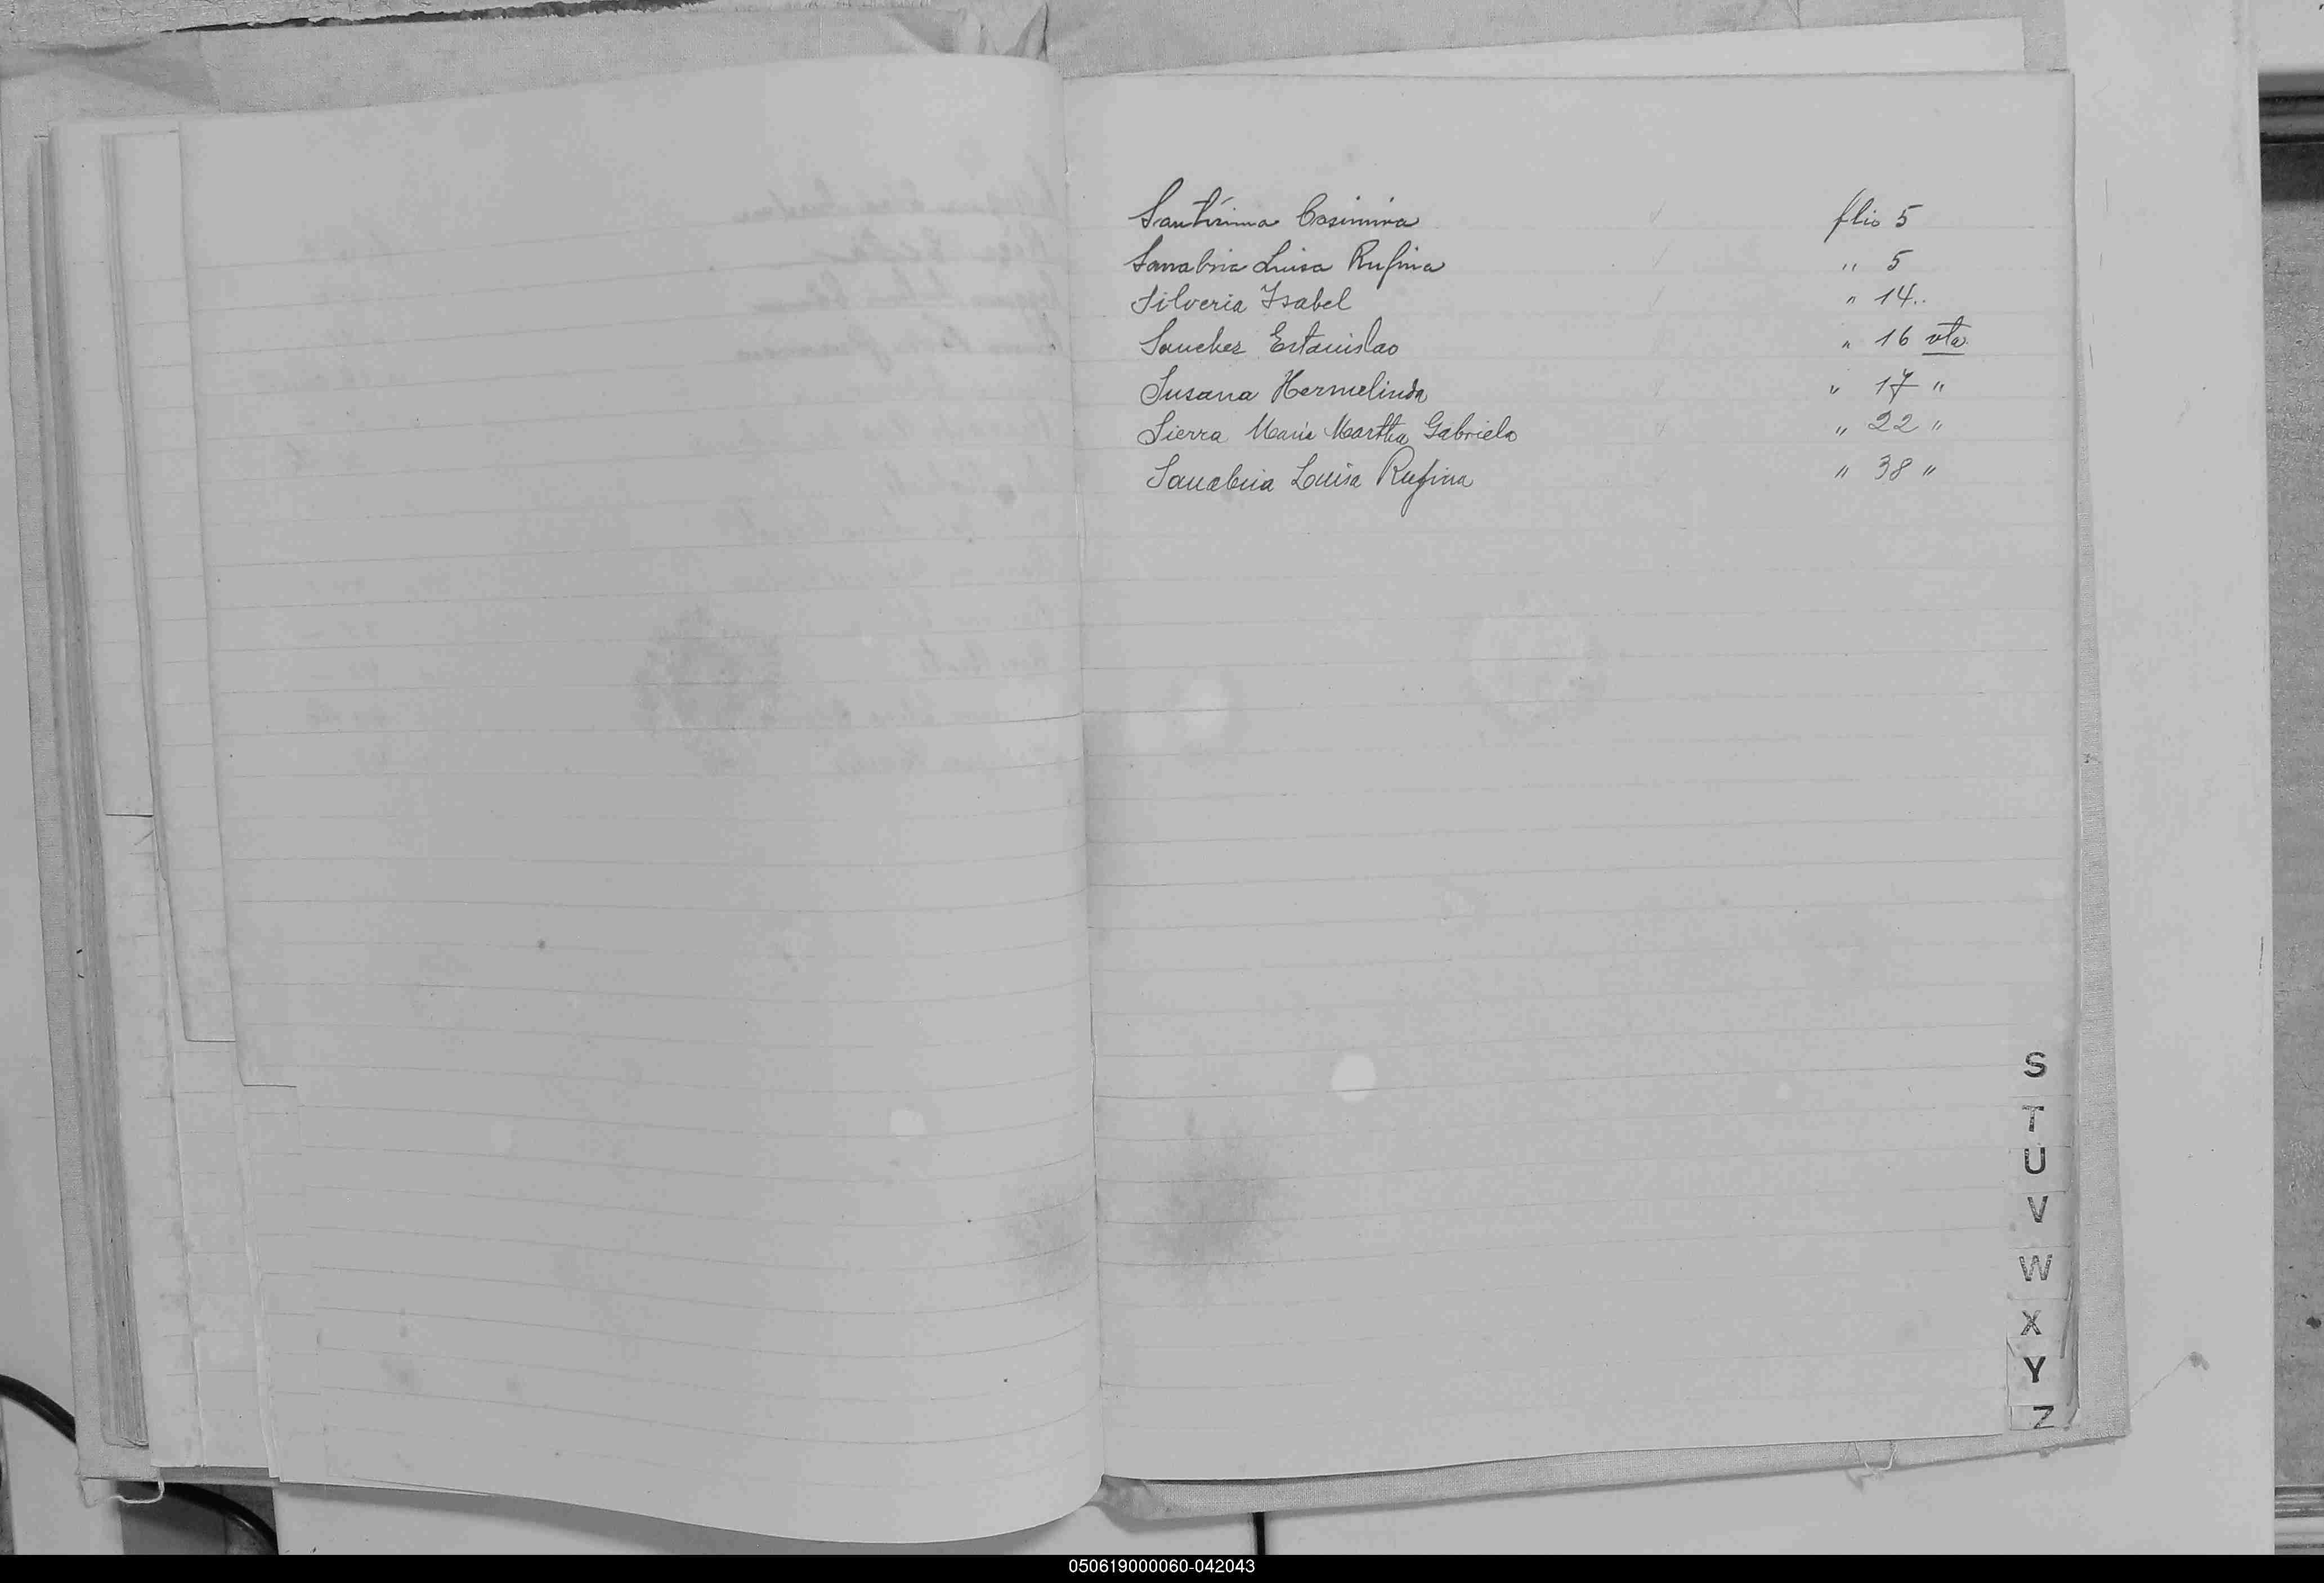 Santísima Casimira flio 5
Sanabria Luisa Rufina " 5
Silveria Ysabel " 14..
Sanchez Estanislao " 16 vta.
Susana Hermelinda " 17 "
Sierra María Martha Gabriela " 22 "
Sanabria Luisa Rufina " 38 "
S
T
U
V
W
X
Y
Z
050619000060-042043